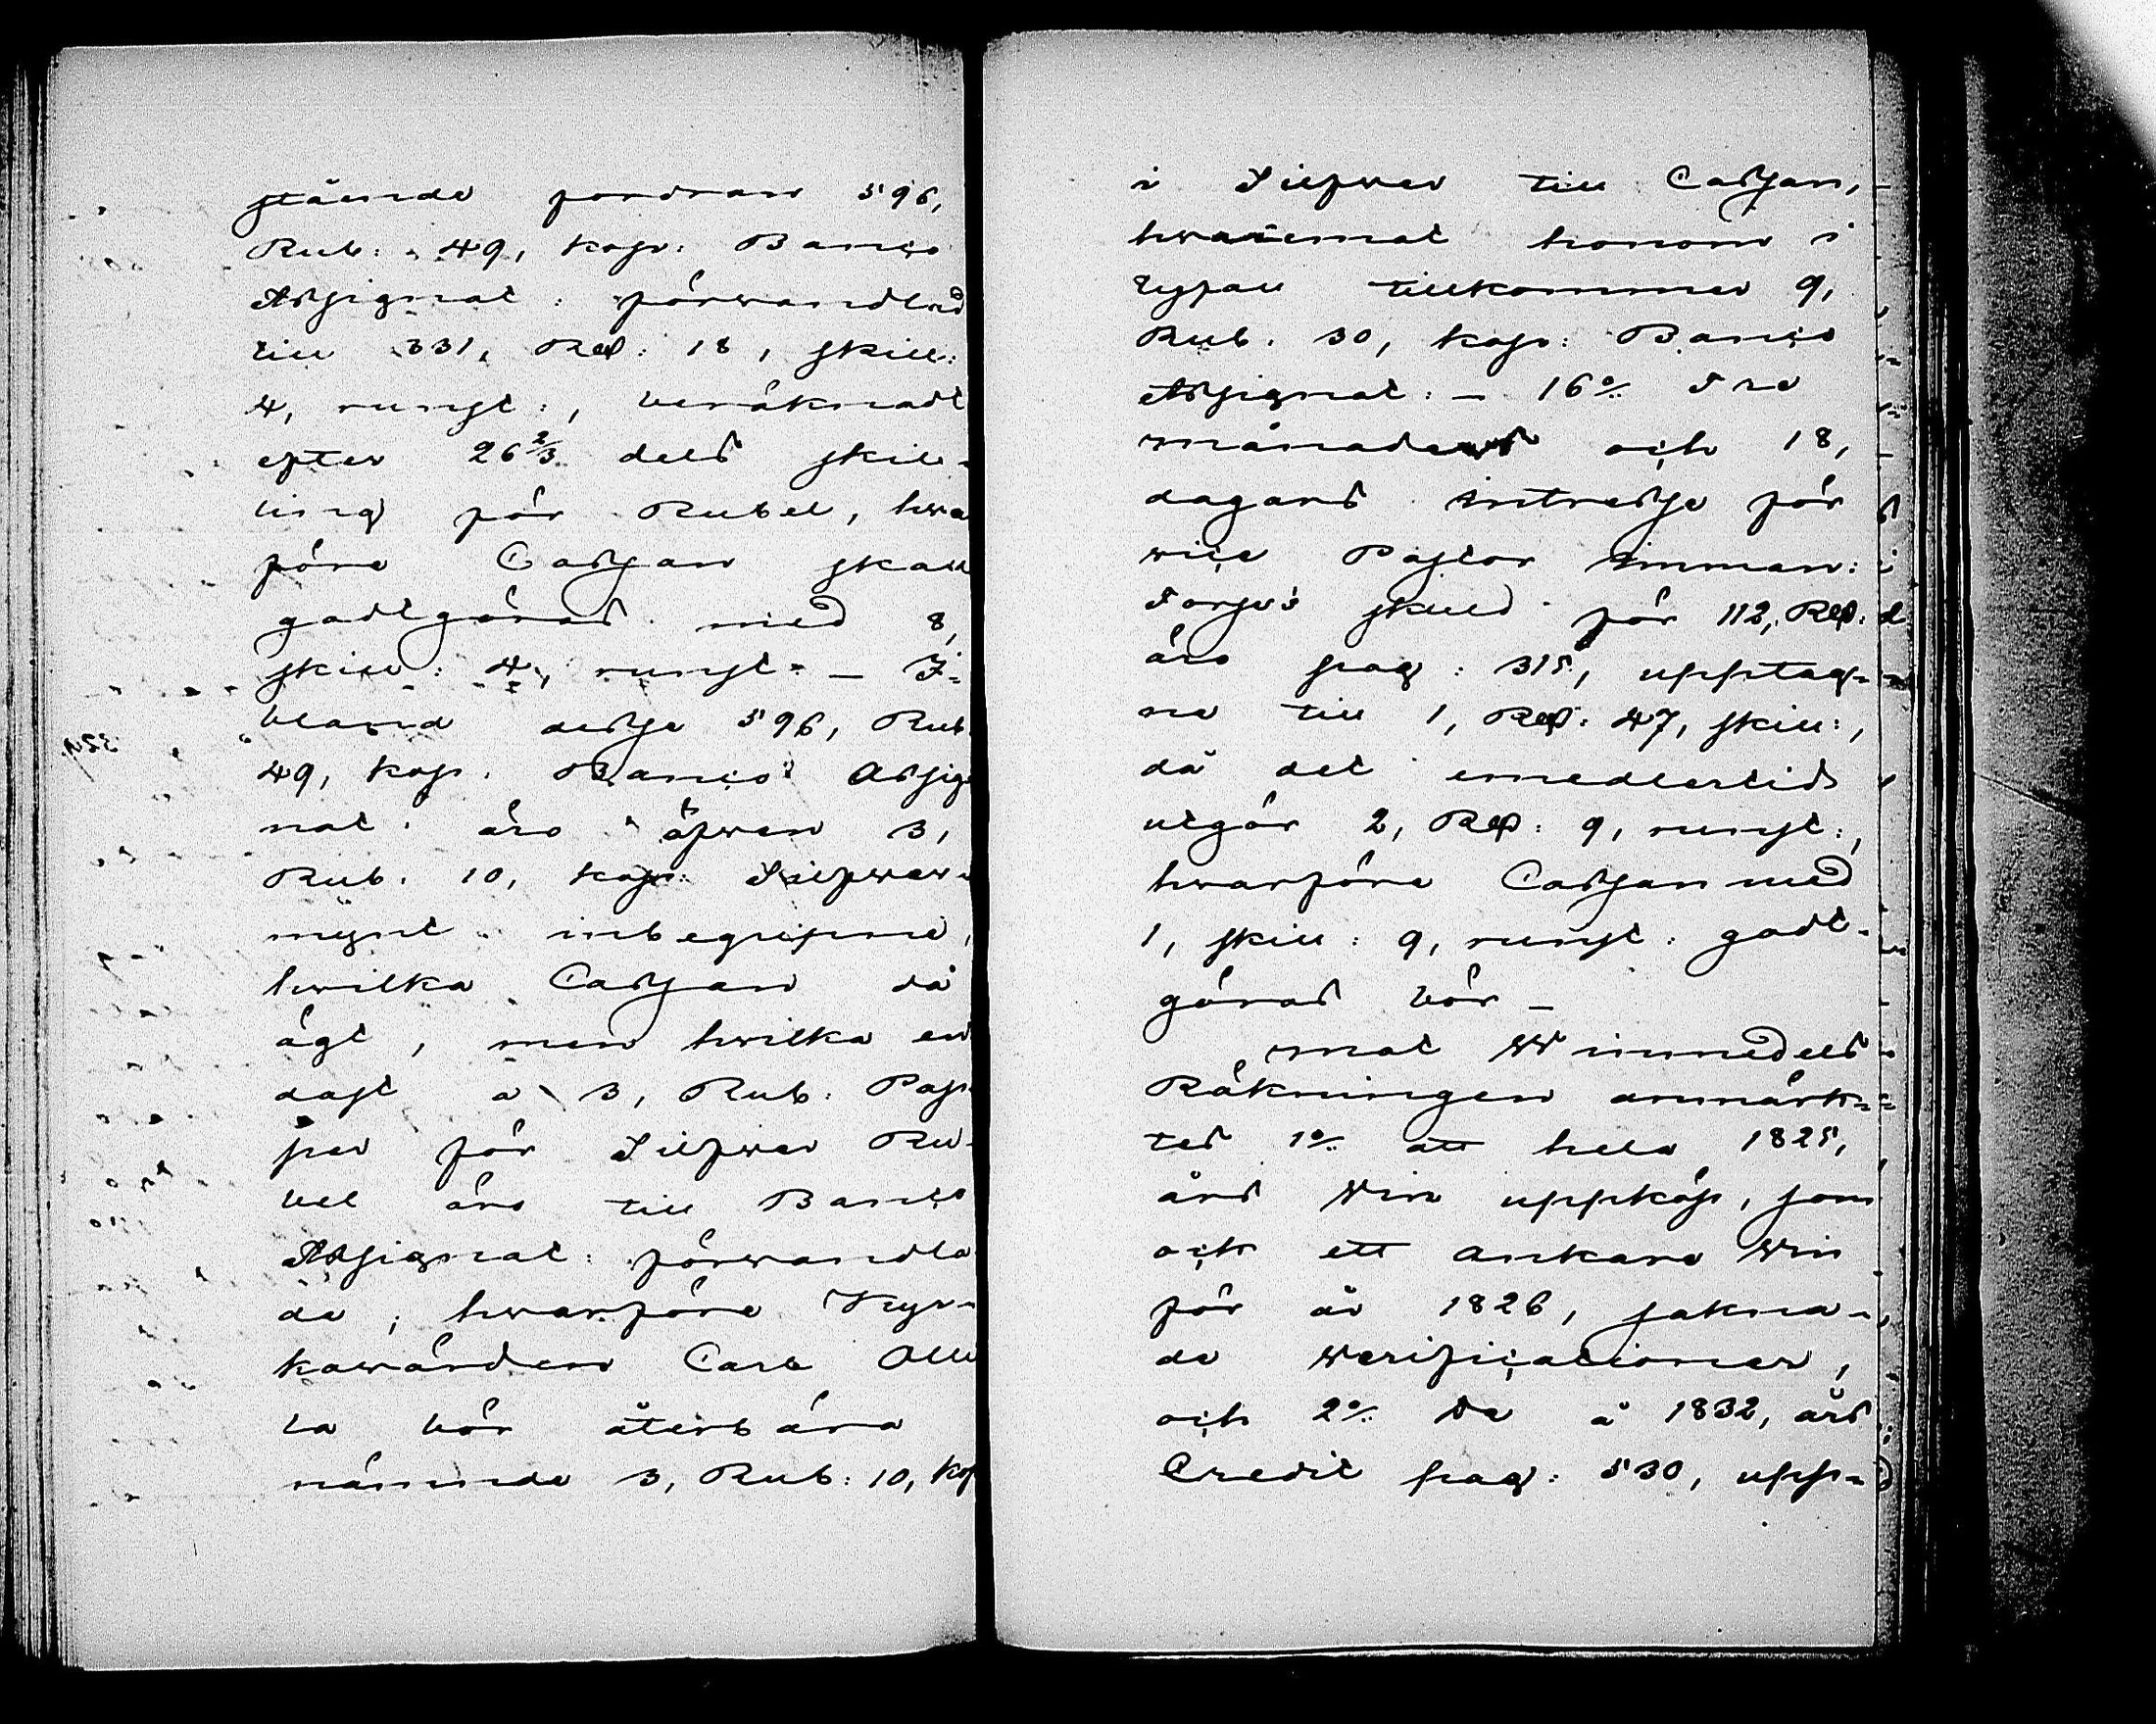 stående fordran 596,
Rub: 49, kop: Banco
Assignat: förwandlad
till 331, Rd: 18, skill:
4, runst:, beräknadt
efter 26 2/3 dels skil-
ling för Rubel, hwa
före Cassan skall
godtgöras med 8,
skill: 4, runst: — I-
bland desse 596, Rub.
49, kop. Banco Assig-
nat: äro äfwen 3,
Rub. 10, kop: Silfwer-
mynt inbegripne,
hwilka Cassan då
ägt, men hwilka en
dast a 3, Rub: Pap-
per för Silfwer Ru-
bel äro till Banco
Assignat: förwandla
de, hwarföre Kyr-
kowärden Carl Olle
la bör återbära
nämnde 3, Rub: 10, kop
i Silfwer till Cassan,
hwaremot honom i
ty fall tillkommer 9,
Rub. 30, kop: Banco
Assignat: — 16o/. Tre
månaders och 18,
dagars intresse för
vice Pastor Imman:
skuld för 112, Rd:
äro pag: 315, upptag-
ne till 1, Rd: 47, skill:,
då det emedlertid
utgör 2, Rd: 9, runst:,
hwarföre Cassan med
1, skill: 9, runst: godt-
göras bör —
mot Winmedels
Räkningen anmärk-
tes 1o/. att hela 1825,
års Win uppköp, som
ock ett ankare Win
för år 1826, sakna-
de werificationer,
och 2o/. De å 1832, års
Credit pag: 530, upp-